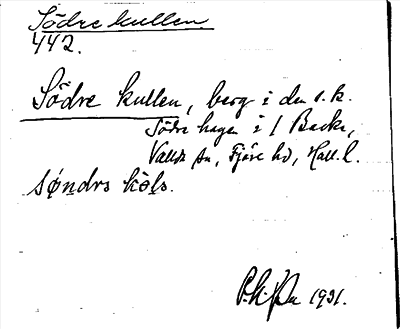 Södre kullen
442.
Södre kullen, berg i den s.k.
Södre hagen i 1 Backe,
Valda sn, Fjäre hd, Hall. l.
søndrə
1931.